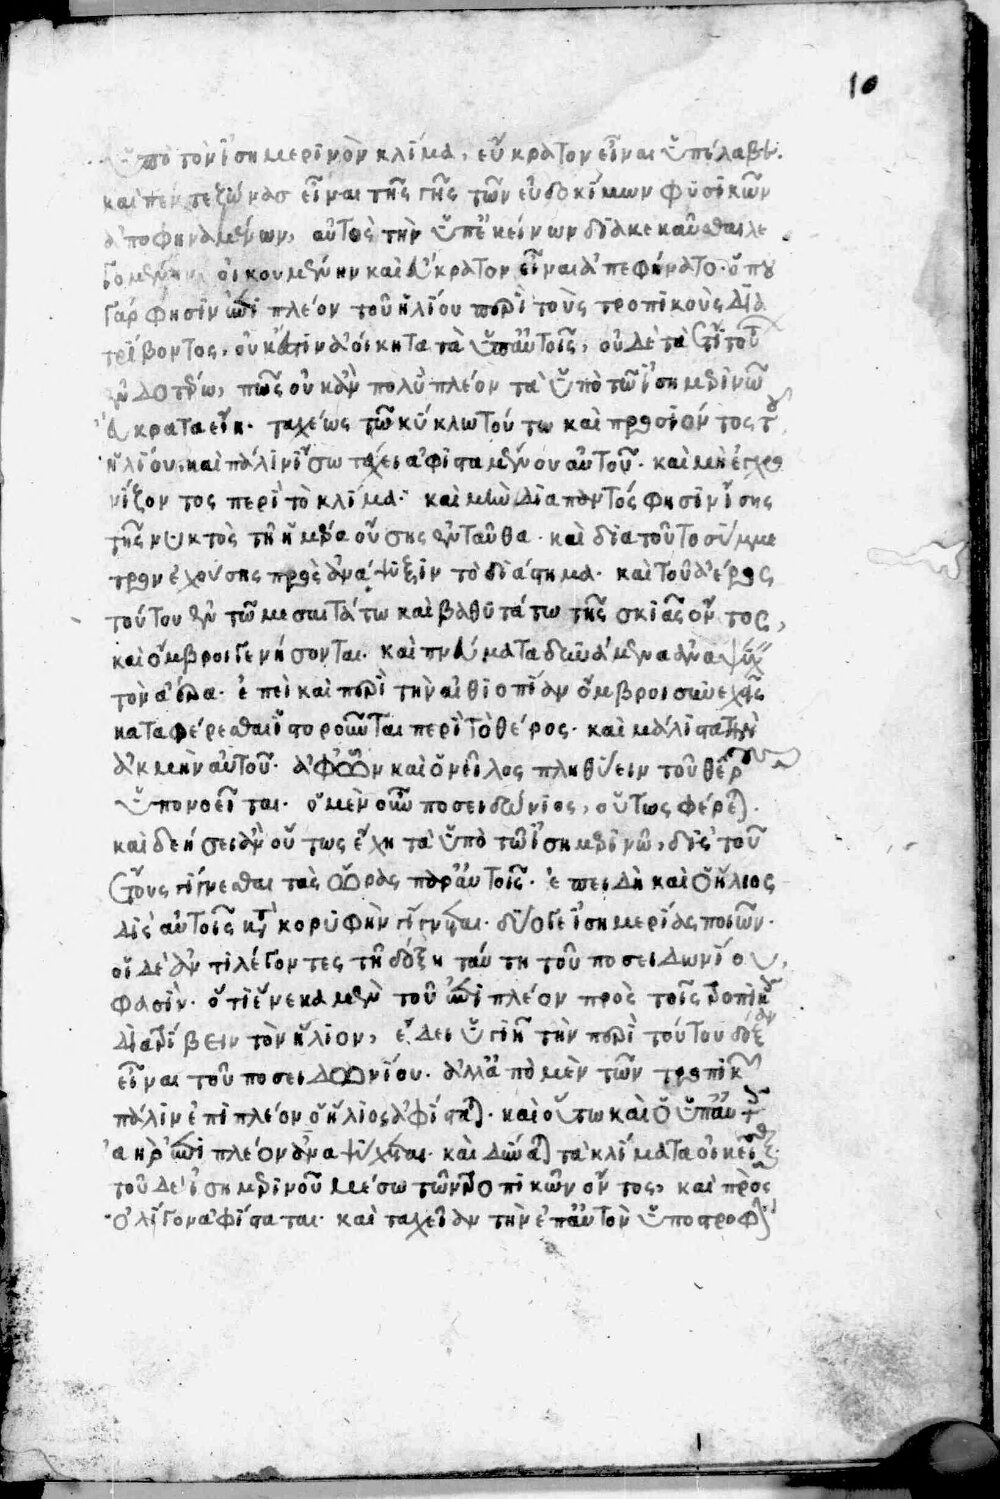 10
ὑπὸ τὸν ἰσημερινὸν κλίμα, εὔκρατον εἶναι ὑπέλαβε.
καὶ πέντε ζώνας εἶναι τῆς γῆς τῶν εὐδοκίμων φυσικῶν
ἀποφηναμένων, αὐτὸς τὴν ὑπ' ἐκείνων διακεκαῦσθαι λε
γομένην οἰκουμένην καὶ εὔκρατον εἶναι ἀπεφήνατο. ὅπου
γάρ φησιν ἐπὶ πλέον τοῦ ἡλίου περὶ τοὺς τροπικοὺς δια
τρίβοντος, οὐκ ἔστιν ἀοίκητα τὰ ὑπ' αὐτοῖς, οὐδὲ τὰ ἔτι τού
των ἐνδοτέρω, πῶς οὐκ ἂν πολὺ πλέον τὰ ὑπὸ τῷ ἰσημερινῷ
εὔκρατα εἴη. ταχέως τῷ κύκλῳ τούτῳ καὶ προσιόντος τοῦ
ἡλίου. καὶ πάλιν ἴσῳ τάχει ἀφισταμένου αὐτοῦ. καὶ μὴ ἐγχρο
νίζοντος περὶ τὸ κλίμα. καὶ μὴν διαπαντός φησιν ἴσης
τῆς νυκτὸς τῇ ἡμέρᾳ οὔσης ἐνταῦθα. καὶ διὰ τοῦτο σύμμε
τρον ἐχούσης πρὸς ἀνάψυξιν τὸ διάστημα. καὶ τοῦ ἀέρος
τούτου ἐν τῷ μεσαιτάτῳ καὶ βαθυτάτῳ τῆς σκιᾶς ὄντος,
καὶ ὄμβροι γενήσονται. καὶ πνεύματα δυνάμενα ἀναψῦξαι
τὸν ἀέρα. ἐπεὶ καὶ περὶ τὴν αἰθιοπίαν ὄμβροι συνεχεῖς
καταφέρεσθαι ἱστοροῦνται περὶ τὸ θέρος. καὶ μάλιστα τὴν
ἀκμὴν αὐτοῦ. ἀφ' ὧν καὶ ὁ νεῖλος πληθύειν τοῦ θέρους
ὑπονοεῖται. ὁ μὲν οὖν ποσειδώνιος, οὕτως φέρεται.
καὶ δεήσει ἂν οὕτως ἔχῃ τὰ ὑπὸ τῷ ἰσημερινῷ, δὶς τοῦ
ἔτους γίγνεσθαι τὰς ὥρας παρ' αὐτοῖς. ἐπειδὴ καὶ ὁ ἥλιος
δὶς αὐτοῖς κατὰ κορυφὴν γίγνεται. δύο γε ἰσημερίας ποιῶν.
οἱ δὲ ἀντιλέγοντες τῇ δόξῃ ταύτῃ τοῦ ποσειδωνίου,
φασίν. ὅτι ἕνεκα μὲν τοῦ ἐπὶ πλέον πρὸς τοῖς τροπικοῖς
διατρίβειν τὸν ἥλιον, ἔδει ὑγιῆ τὴν περὶ τούτου δόξαν
εἶναι τοῦ ποσειδωνίου. ἀλλὰ ἀπὸ μὲν τῶν τροπικῶν
πάλιν ἐπὶ πλέον ὁ ἥλιος ἀφίσταται. καὶ οὕτω καὶ ὁ ὑπ' αὐτοῖς
ἀὴρ ἐπὶ πλέον ἀναψύχεται. καὶ δύναται τὰ κλίματα οἰκεῖσθαι.
τοῦ δὲ ἰσημερινοῦ μέσῳ τῶν τροπικῶν ὄντος, καὶ πρὸς
ὀλίγον ἀφίσταται. καὶ ταχεῖαν τὴν ἐπ' αὐτὸν ὑποστροφὴν